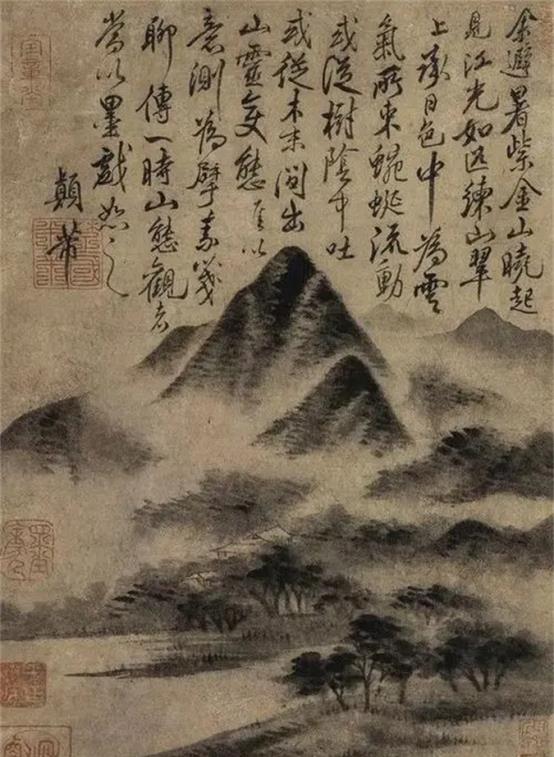 余避暑紫金山曉起
見江光如匹練山翠
上承日色中為雲
氣所束蜿蜒流動
或從樹陰中吐
或從木末間出
山靈變態以
意測為擘素箋
聊傳一時山態觀者
當以墨戲恕之
顛芾